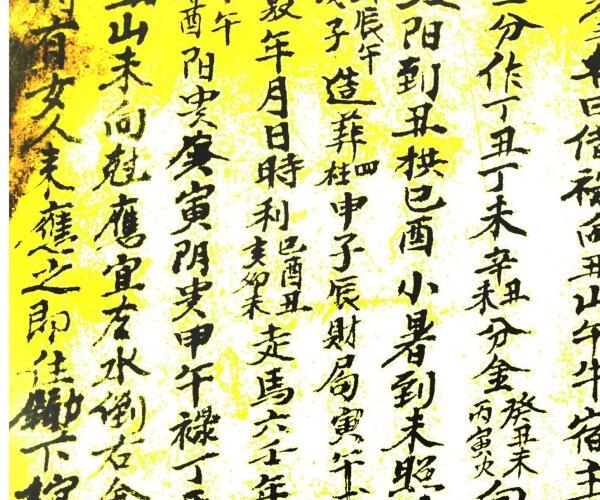 日借祿向丑山午牛宿主
分作丁丑丁未辛丑未分金癸丑未丙寅火向
阳到丑拱巳酉小暑到未照
子辰午造葬四柱申子辰財局寅午
年月日時利巳酉丑亥卯未走馬六壬年
酉午阳贵寅阴贵甲午祿丁
山未向尅應宜左水倒右金
有女人来應之即住鋤下